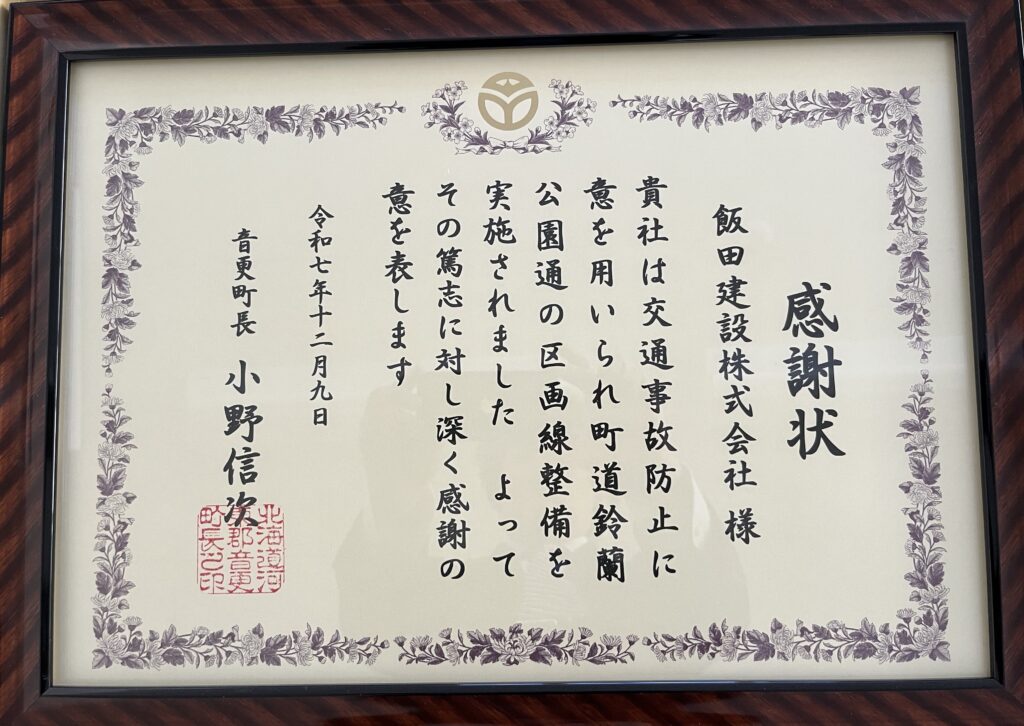 感謝状
飯田建設株式会社 様
貴社は交通事故防止に
意を用いられ町道鈴蘭
公園通の区画線整備を
実施されました よって
その篤志に対し深く感謝の
意を表します
令和七年十二月九日
音更町長 小野信次
北海道河
東郡音更
町長之印